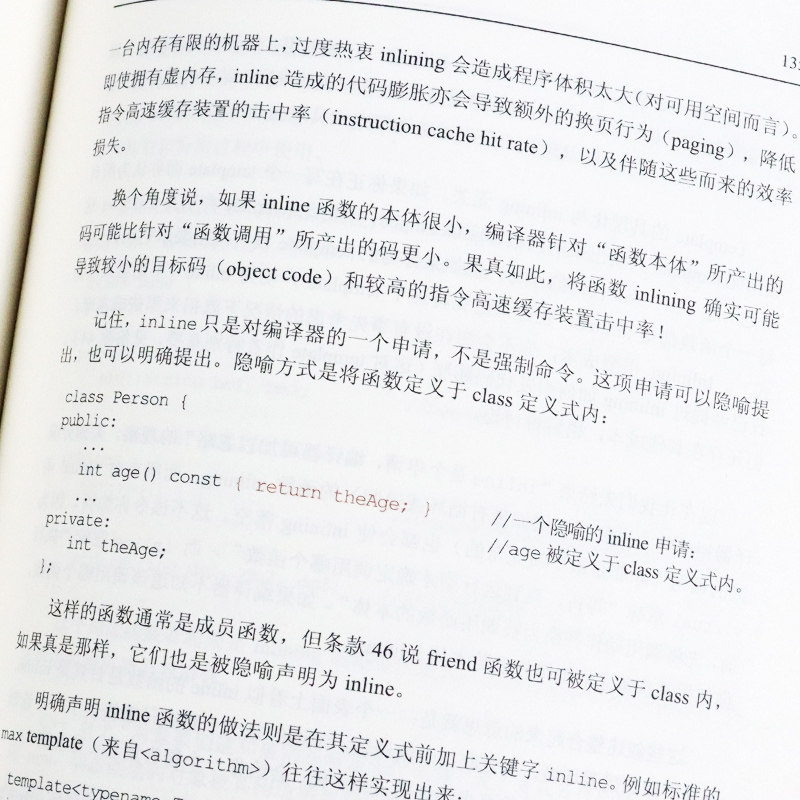 135
一台内存有限的机器上，过度热衷 inlining 会造成程序体积太大（对可用空间而言）。
即使拥有虚内存，inline 造成的代码膨胀亦会导致额外的换页行为（paging），降低
指令高速缓存装置的击中率（instruction cache hit rate），以及伴随这些而来的效率
损失。
换个角度说，如果 inline 函数的本体很小，编译器针对“函数本体”所产出的
码可能比针对“函数调用”所产出的码更小。果真如此，将函数 inlining 确实可能
导致较小的目标码（object code）和较高的指令高速缓存装置击中率！
记住，inline 只是对编译器的一个申请，不是强制命令。这项申请可以隐喻提
出，也可以明确提出。隐喻方式是将函数定义于 class 定义式内：
class Person {
public:
...
int age() const { return theAge; } //一个隐喻的 inline 申请：
... //age 被定义于 class 定义式内。
private:
int theAge;
};
这样的函数通常是成员函数，但条款 46 说 friend 函数也可被定义于 class 内，
如果真是那样，它们也是被隐喻声明为 inline。
明确声明 inline 函数的做法则是在其定义式前加上关键字 inline。例如标准的
max template（来自<algorithm>）往往这样实现出来：
template<typename